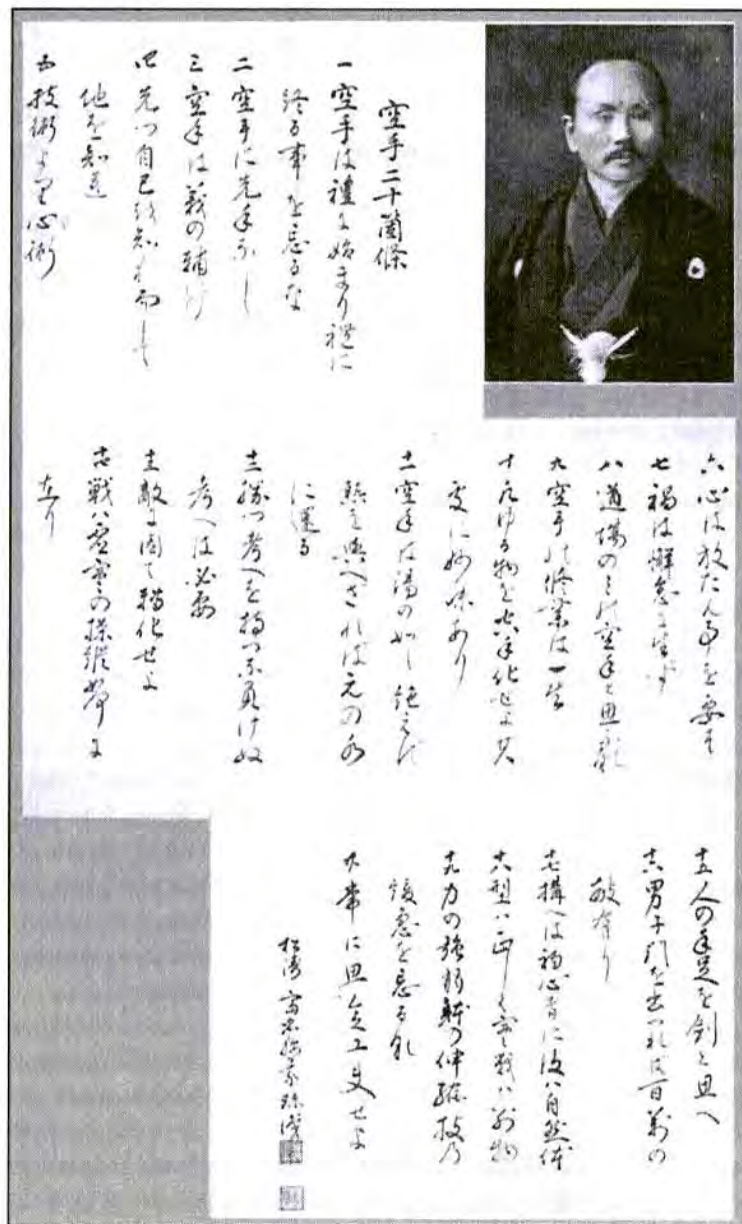 空手二十箇條
一 空手は禮に始まり禮に
終る事を忘るな
二 空手に先手なし
三 空手は義の輔け
四 先づ自己を知れ而して
他を知れ
五 技術より心術
六 心は放たん事を要す
七 禍は懈怠に生ず
八 道場のみの空手と思ふな
九 空手の修業は一生
十 凡ゆる物を空手化せよ其
處に妙味あり
十一 空手は湯の如し絶えず
熱を與へざれば元の水
に還る
十二 勝つ考へを持つな負けぬ
考へは必要
十三 敵に因て轉化せよ
十四 戦ハ虚実の操縦如何に
在り
十五 人の手足を剣と思へ
十六 男子門を出づれば百萬の
敵有り
十七 構へは初心者に後ハ自然体
十八 型ハ正しく実戦ハ別物
十九 力の強弱躰の伸縮技の
緩急を忘るな
二十 常に思念工夫せよ
松涛 富名腰義珍識